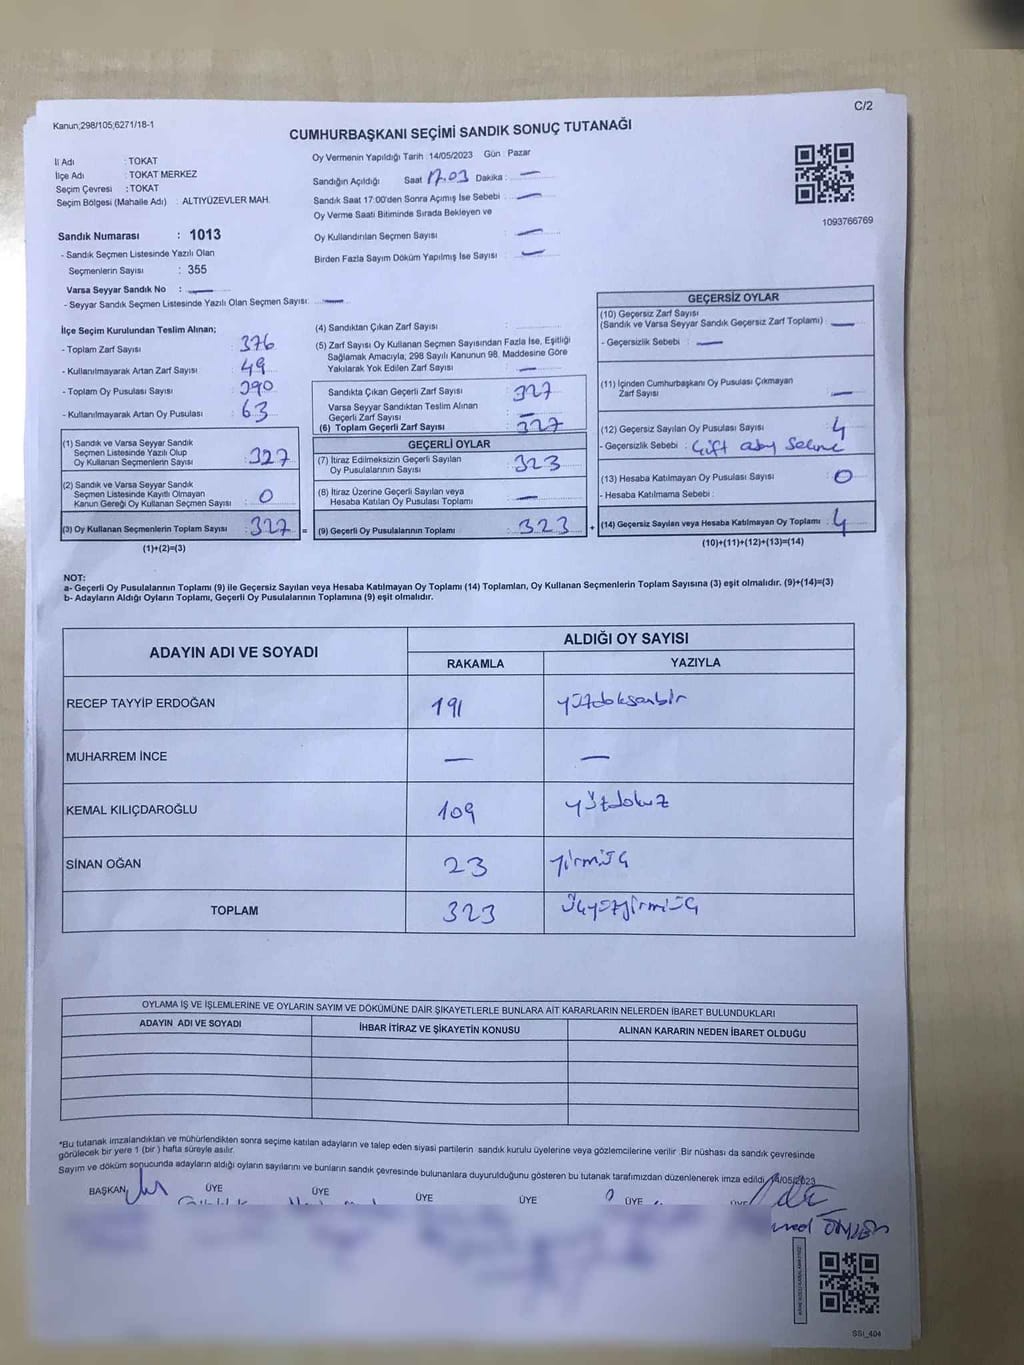 C/2
Kanun;298/105;6271/18-1
CUMHURBAŞKANI SEÇİMİ SANDIK SONUÇ TUTANAĞI
İl Adı : TOKAT
İlçe Adı : TOKAT MERKEZ
Seçim Çevresi : TOKAT
Seçim Bölgesi (Mahalle Adı) : ALTIYÜZEVLER MAH.
Oy Vermenin Yapıldığı Tarih :14/05/2023 Gün : Pazar
Sandığın Açıldığı Saat 17.03 Dakika : —
Sandık Saat 17:00'den Sonra Açımış İse Sebebi : —
Oy Verme Saati Bitiminde Sırada Bekleyen ve
Oy Kullandırılan Seçmen Sayısı : —
Birden Fazla Sayım Döküm Yapılmış İse Sayısı : —
1093766769
Sandık Numarası : 1013
- Sandık Seçmen Listesinde Yazılı Olan
Seçmenlerin Sayısı : 355
Varsa Seyyar Sandık No : —
- Seyyar Sandık Seçmen Listesinde Yazılı Olan Seçmen Sayısı: —
İlçe Seçim Kurulundan Teslim Alınan;
- Toplam Zarf Sayısı : 376
- Kullanılmayarak Artan Zarf Sayısı : 49
- Toplam Oy Pusulası Sayısı : 390
- Kullanılmayarak Artan Oy Pusulası : 63
(1) Sandık ve Varsa Seyyar Sandık
Seçmen Listesinde Yazılı Olup
Oy Kullanan Seçmenlerin Sayısı : 327
(2) Sandık ve Varsa Seyyar Sandık
Seçmen Listesinde Kayıtlı Olmayan
Kanun Gereği Oy Kullanan Seçmen Sayısı : 0
(3) Oy Kullanan Seçmenlerin Toplam Sayısı : 327
(1)+(2)=(3)
(4) Sandıktan Çıkan Zarf Sayısı :
(5) Zarf Sayısı Oy Kullanan Seçmen Sayısından Fazla İse, Eşitliği
Sağlamak Amacıyla, 298 Sayılı Kanunun 98. Maddesine Göre
Yakılarak Yok Edilen Zarf Sayısı : —
Sandıkta Çıkan Geçerli Zarf Sayısı : 327
Varsa Seyyar Sandıktan Teslim Alınan
Geçerli Zarf Sayısı : —
(6) Toplam Geçerli Zarf Sayısı : 327
GEÇERLİ OYLAR
(7) İtiraz Edilmeksizin Geçerli Sayılan
Oy Pusulalarının Sayısı : 323
(8) İtiraz Üzerine Geçerli Sayılan veya
Hesaba Katılan Oy Pusulası Toplamı : —
= (9) Geçerli Oy Pusulalarının Toplamı : 323 +
GEÇERSİZ OYLAR
(10) Geçersiz Zarf Sayısı
(Sandık ve Varsa Seyyar Sandık Geçersiz Zarf Toplamı) : —
- Geçersizlik Sebebi : —
(11) İçinden Cumhurbaşkanı Oy Pusulası Çıkmayan
Zarf Sayısı : —
(12) Geçersiz Sayılan Oy Pusulası Sayısı : 4
- Geçersizlik Sebebi : Çift aday Seçme
(13) Hesaba Katılmayan Oy Pusulası Sayısı : 0
- Hesaba Katılmama Sebebi :
(14) Geçersiz Sayılan veya Hesaba Katılmayan Oy Toplamı : 4
(10)+(11)+(12)+(13)=(14)
NOT:
a- Geçerli Oy Pusulalarının Toplamı (9) ile Geçersiz Sayılan veya Hesaba Katılmayan Oy Toplamı (14) Toplamları, Oy Kullanan Seçmenlerin Toplam Sayısına (3) eşit olmalıdır. (9)+(14)=(3)
b- Adayların Aldığı Oyların Toplamı, Geçerli Oy Pusulalarının Toplamına (9) eşit olmalıdır.
ADAYIN ADI VE SOYADI
ALDIĞI OY SAYISI
RAKAMLA YAZIYLA
RECEP TAYYİP ERDOĞAN 191 yüzdoksanbir
MUHARREM İNCE — —
KEMAL KILIÇDAROĞLU 109 yüzdokuz
SİNAN OĞAN 23 yirmiüç
TOPLAM 323 üçyüzyirmiüç
OYLAMA İŞ VE İŞLEMLERİNE VE OYLARIN SAYIM VE DÖKÜMÜNE DAİR ŞİKAYETLERLE BUNLARA AİT KARARLARIN NELERDEN İBARET BULUNDUKLARI
ADAYIN ADI VE SOYADI İHBAR İTİRAZ VE ŞİKAYETİN KONUSU ALINAN KARARIN NEDEN İBARET OLDUĞU
*Bu tutanak imzalandıktan ve mühürlendikten sonra seçime katılan adayların ve talep eden siyasi partilerin sandık kurulu üyelerine veya gözlemcilerine verilir .Bir nüshası da sandık çevresinde
görülecek bir yere 1 (bir ) hafta süreyle asılır.
Sayım ve döküm sonucunda adayların aldığı oyların sayılarını ve bunların sandık çevresinde bulunanlara duyurulduğunu gösteren bu tutanak tarafımızdan düzenlenerek imza edildi. 14/05/2023
BAŞKAN ÜYE ÜYE ÜYE ÜYE ÜYE ÜYE
SSI_404